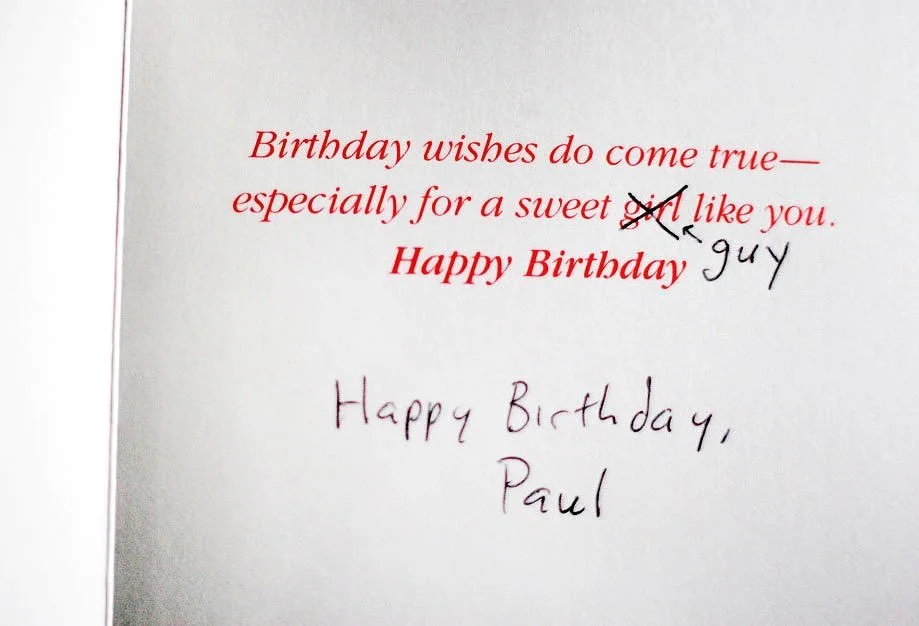 Birthday wishes do come true—
especially for a sweet girl like you.
guy
Happy Birthday
Happy Birthday,
Paul